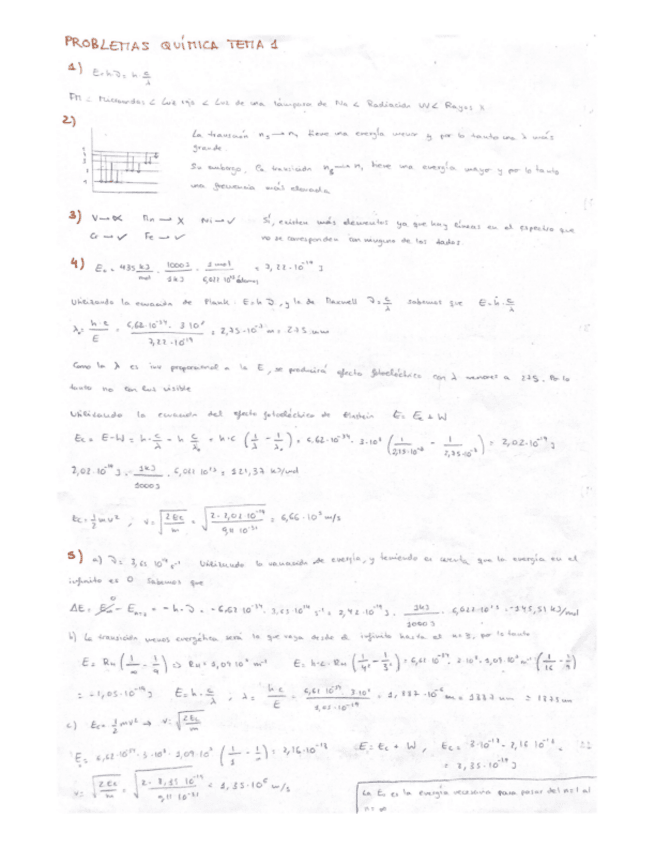 PROBLEMAS QUÍMICA TEMA 1
1) E=h·ν= h·c/λ
FM < Microondas < Luz roja < Luz de una lámpara de Na < Radiación UV < Rayos X
2)
La transición n₃→n₁ tiene una energía menor y por lo tanto una λ más
grande.
Su embargo, la transición n₆→n₁ tiene una energía mayor y por lo tanto
una frecuencia más elevada
3) V→ Mn→X Ni→✓ Sí, existen más elementos ya que hay líneas en el espectro que
Cr→✓ Fe→✓ no se corresponden con ninguno de los dados.
4) E₀ = 435 kJ/mol · 1000J/1kJ · 1 mol/6,022·10²³ átomos = 7,22·10⁻¹⁹ J
Utilizando la ecuación de Plank E=h·ν, y la de Maxwell ν=c/λ sabemos que E=h·c/λ
λ₀= h·c/E = 6,62·10⁻³⁴ · 3·10⁸/7,22·10⁻¹⁹ = 2,75·10⁻⁷ m = 275 nm
Como la λ es inv proporcional a la E, se producirá efecto fotoeléctrico con λ menores a 275. Por lo
tanto no con luz visible
Utilizando la ecuación del efecto fotoeléctrico de Einstein E= Ec + W
Ec = E-W = h·c/λ - h·c/λ₀ = h·c (1/λ - 1/λ₀) = 6,62·10⁻³⁴ · 3·10⁸ ( - 1/2,75·10⁻⁷) = 2,02·10⁻¹⁹ J
2,02·10⁻¹⁹ J · 1kJ/1000J · 6,022·10²³ = 121,37 kJ/mol
Ec=½mv² ; v=√(2Ec/m) = √(2·2,02·10⁻¹⁹/9,11·10⁻³¹) = 6,66·10⁵ m/s
5) a) ν= 3,65·10¹⁴ s⁻¹ Utilizando la ecuación de energía, y teniendo en cuenta que la energía en el
infinito es 0 sabemos que
ΔE = E∞ - Eₙ₌₃ = -h·ν = -6,62·10⁻³⁴ · 3,65·10¹⁴ s⁻¹ = 2,42·10⁻¹⁹ J · 1kJ/1000J · 6,022·10²³ = -145,51 kJ/mol
b) La transición menos energética será la que vaya desde el infinito hasta el n=3, por lo tanto
E= RH (1/∞ - 1/9) ⇒ RH = 1,09·10⁷ m⁻¹ E= h·c·RH (1/4² - 1/3²) = 6,62·10⁻³⁴ · 3·10⁸ · 1,09·10⁷ m⁻¹ (1/16 - 1/9)
= -1,05·10⁻¹⁹ J E=h·c/λ ; λ= h·c/E = 6,62·10⁻³⁴ · 3·10⁸/1,05·10⁻¹⁹ = 1,887·10⁻⁶ m = 1887 nm ≃ 1875 nm
c) Ec=½mv² → v=√(2Ec/m)
E₀= 6,62·10⁻³⁴ · 3·10⁸ · 1,09·10⁷ (1/1 - 1/∞) = 2,16·10⁻¹⁸ E= Ec + W , Ec= 3·10⁻¹⁸ - 2,16·10⁻¹⁸ =
= 8,35·10⁻¹⁹ J
v= √(2Ec/m) = √(2·8,35·10⁻¹⁹/9,11·10⁻³¹) = 1,35·10⁶ m/s
La E₀ es la energía necesaria para pasar del n=1 al
n=∞